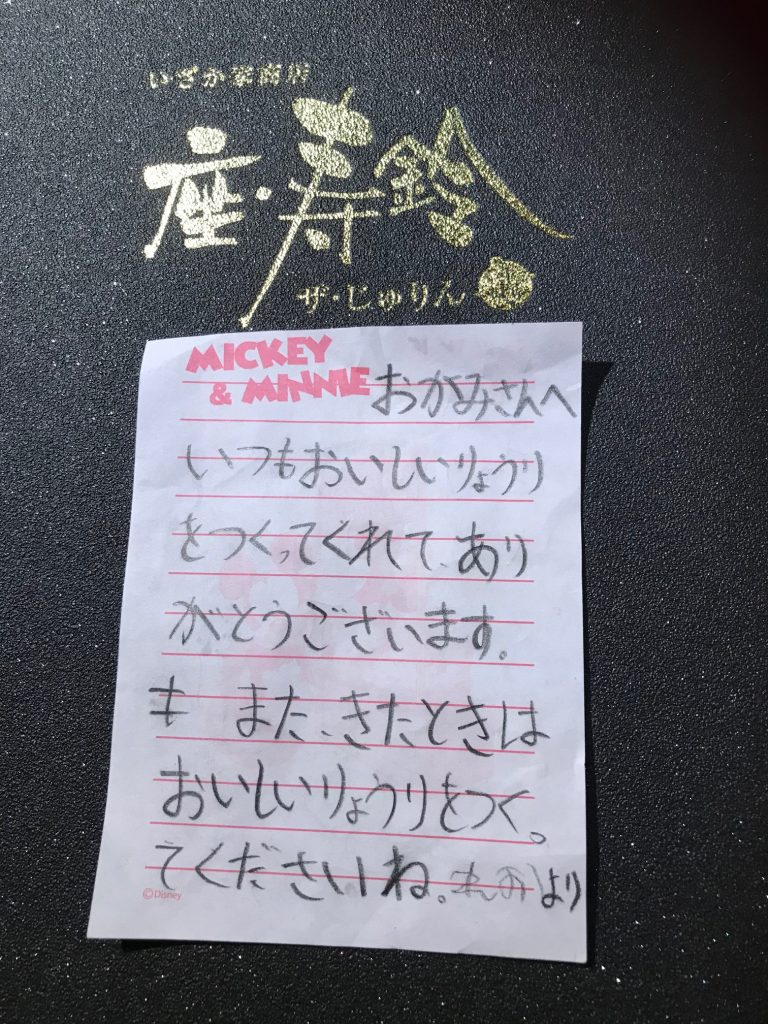 いざか家商店
座・寿鈴
ザ・じゅりん
MICKEY
& MINNIE
おかみさんへ
いつもおいしいりょうり
をつくってくれて、あり
がとうございます。
また、きたときは
おいしいりょうりをつくっ
てくださいね。
より
©Disney